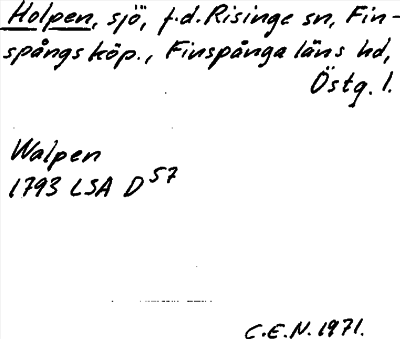 Holpen, sjö, f.d. Risinge sn, Fin-
spångs köp., Finspånga läns hd,
Östg. l.
Walpen
1793 LSA D 57
C.E.N. 1971.